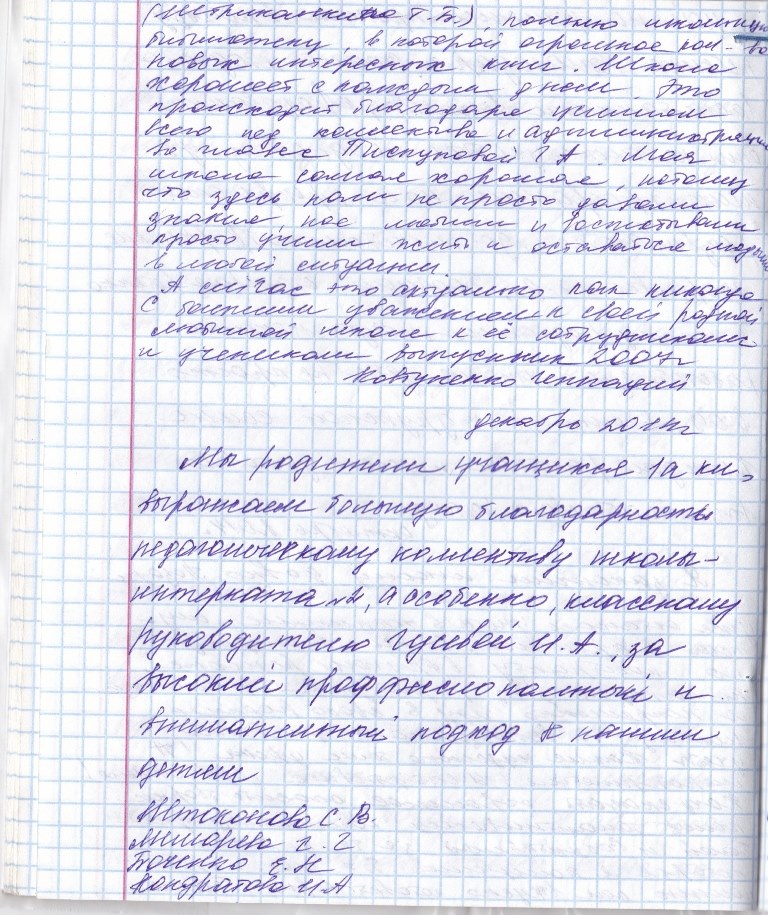 Т. Б.) полню школьную
библиотеку, в которой огромное кол-во
новых интересных книг. Школа
хорошеет с каждым днем. Это
происходит благодаря усилиям
всего пед коллектива и администрации
во главе Т А. Моя
школа самая хорошая, потому
что здесь нам не просто давали
знания, нас любили и воспитывали
просто учили жить и оставаться людьми
в любой ситуации.
А сейчас это актуально как никогда
С большим уважением к своей родной
любимой школе к её сотрудникам
и ученикам выпускник 2007г
Ковтуненко Геннадий
декабрь
Мы родители учащихся 1а кл,
выражаем большую благодарность
педагогическому коллективу школы-
интерната №2, а особенно, классному
руководителю Гусевой И. А., за
высокий профессиональный и
внимательный подход к нашим
детям
С. В.
Г
Боченко Е. Н
Кондратова И А